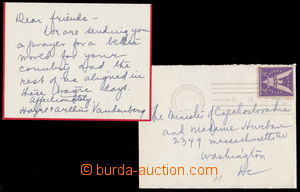 Dear friends -
We are sending you
a prayer for a better
world for your
country and the
rest of us aligned in
these tragic days.
Affectionately,
Hazel & Arthur Vandenberg
The Minister of Czechoslovakia
and Madame Hurban
2349 Massachusetts Ave
Washington
DC
burda-auction.com